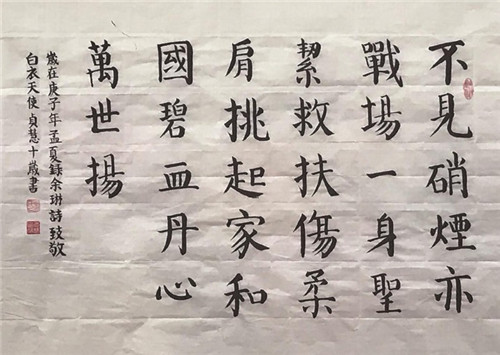 不見硝煙亦
戰場一身聖
絜救扶傷柔
肩挑起家和
國碧血丹心
萬世揚
歲在庚子年孟夏錄余琳詩致敬
白衣天使貞慧十歲書